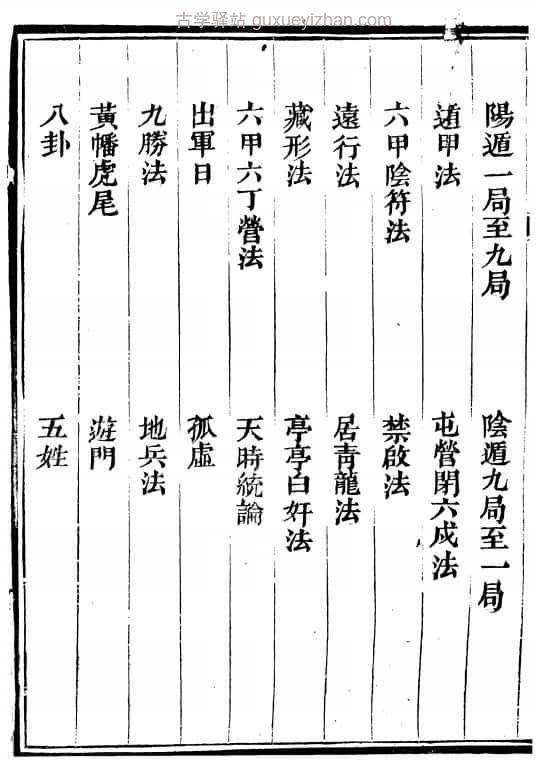 古学驿站 guxueyizhan.com
陽遁一局至九局 陰遁九局至一局
遁甲法 屯營閉六戍法
六甲陰符法 禁啟法
遠行法 居青龍法
藏形法 亭亭白奸法
六甲六丁營法 天時統論
出軍日 孤虛
九勝法 地兵法
黃幡虎尾 遊門
八卦 五姓